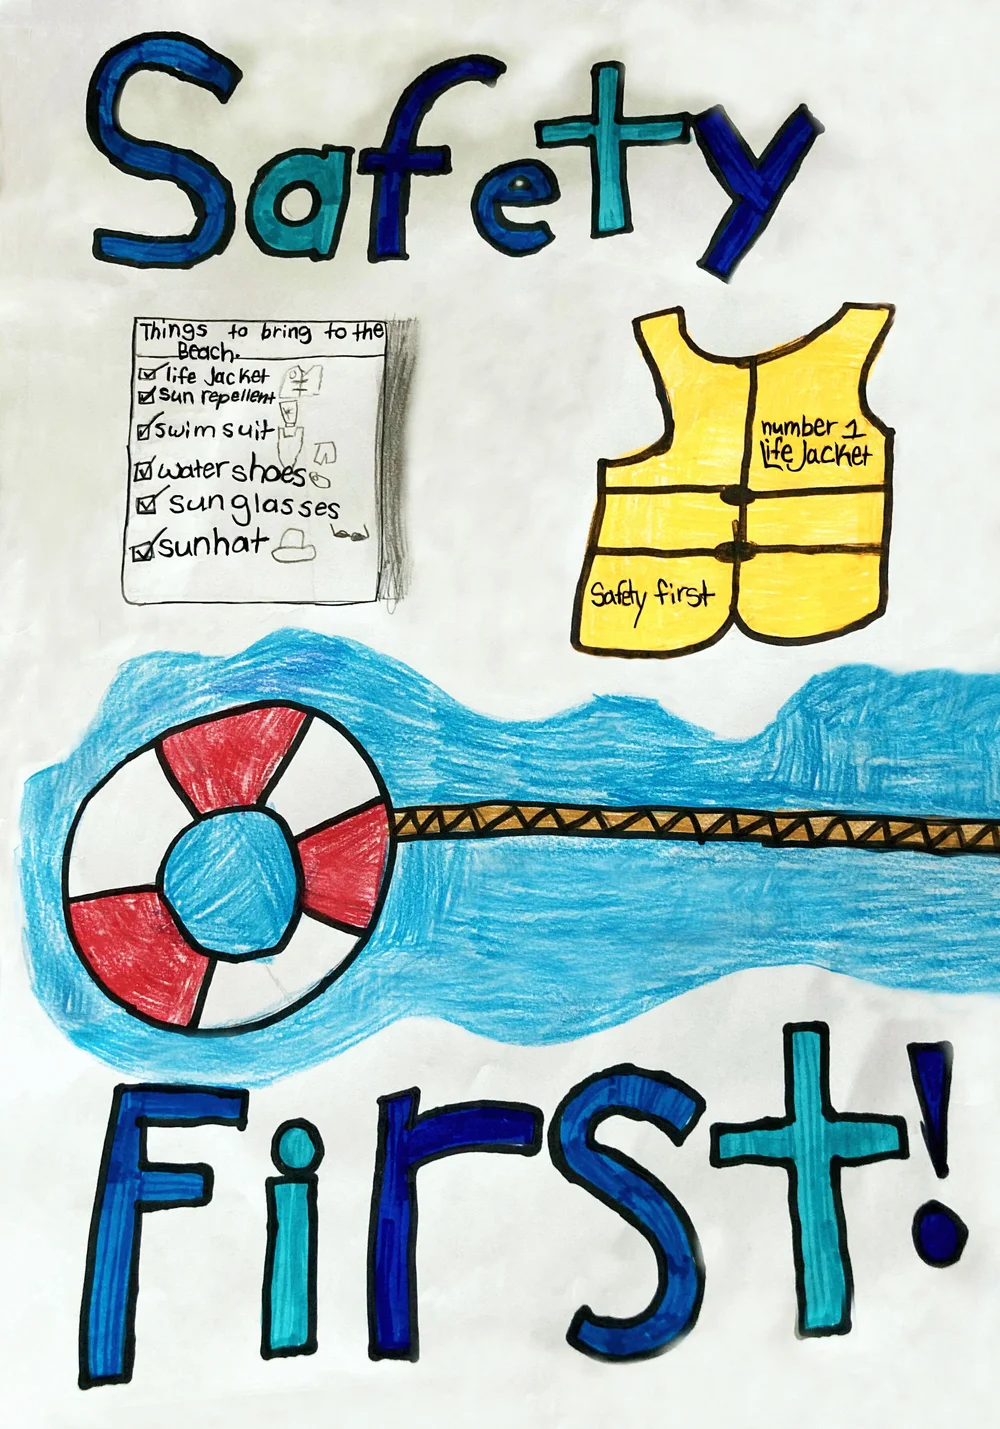 Safety
Things to bring to the
Beach.
life Jacket
sun repellent
swim suit
water shoes
sunglasses
sunhat
number 1
Life Jacket
Safety first
First!